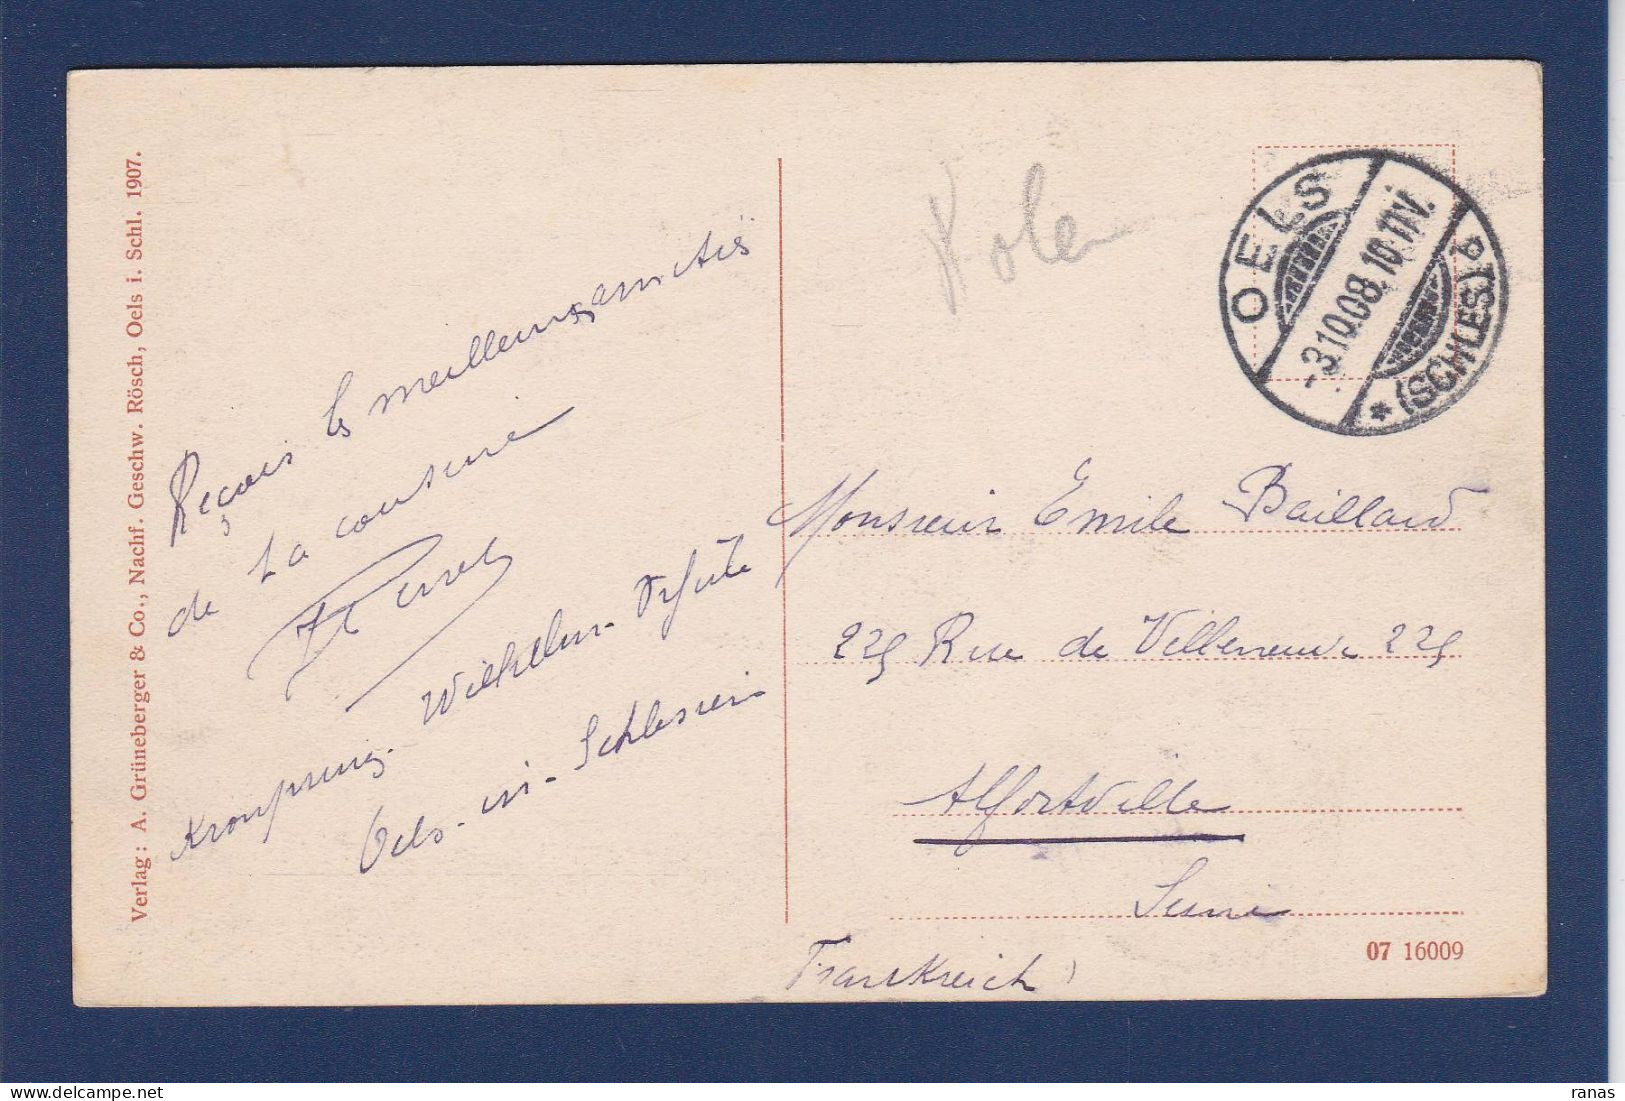 Verlag: A. Grüneberger & Co., Nachf. Geschw. Rösch, Oels i. Schl. 1907.
Reçois les meilleures amitiés
de ta cousine
Kronprinz - Wilhelm -
Oels - in - Schlesien
OELS
-3.10.08. 10-11V.
* (SCHLES.)
Monsieur Emile Baillard
229 Rue de Villeneuve 229
Alfortville
Seine
Frankreich
07 16009
ranas